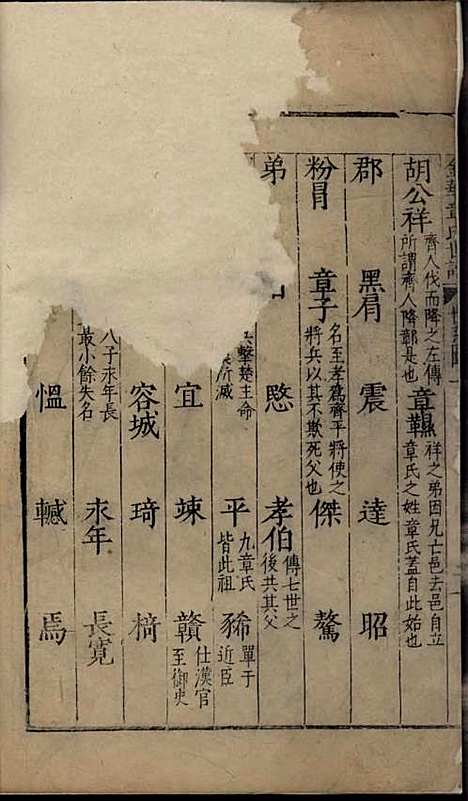 胡公祥 齊人伐而降之左傳所謂齊人降鄣是也 章韅 祥之弟因兄亡邑去邑自立章氏之姓章氏蓋自此始也
郡 黑肩 震 達 昭
粉冒 章子 名至孝為齊平將使之將兵以其不欺死父也 傑 驁
弟 愍 孝伯 傳七世之後共其父
擊楚主命 所滅 平 九章氏皆此祖 豨 單于近臣
宜 竦 贛 仕漢官至御史
容城 琦 椅
八子永年長最小餘失名 永年 長寬
慍 轗 焉